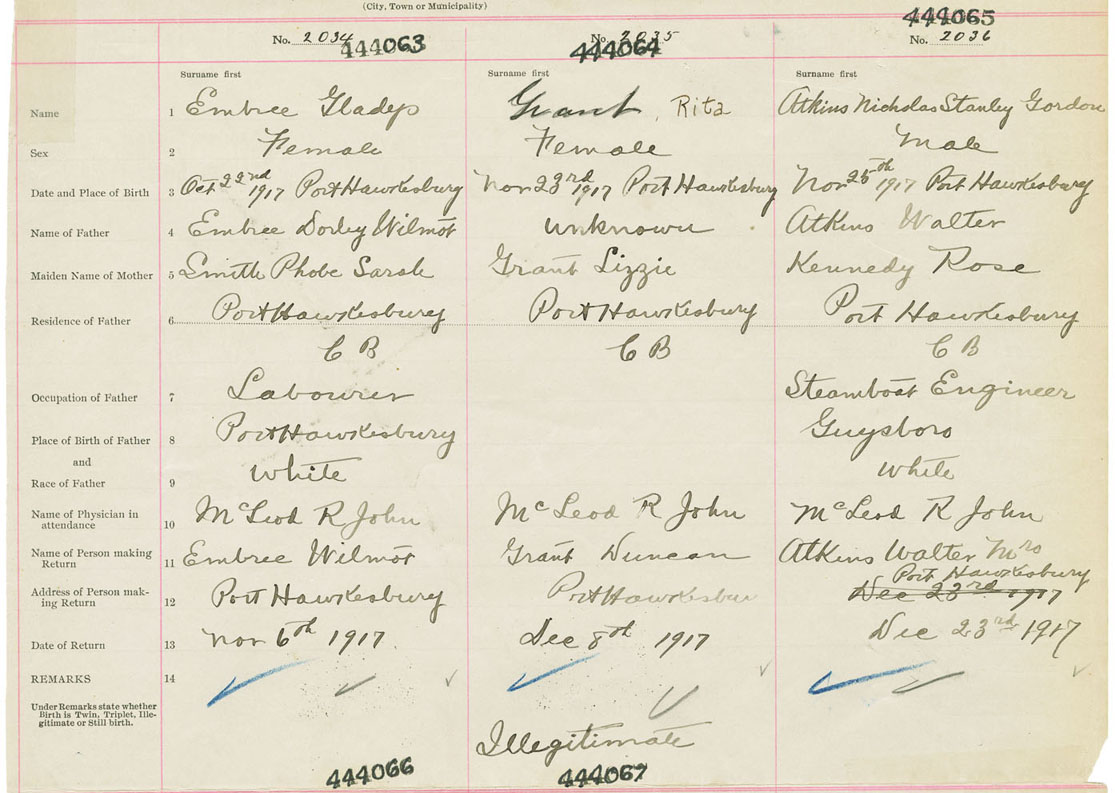 (City, Town or Municipality)
No. 2034 444063 No. 2035 444064 444065 No. 2036
Surname first Surname first Surname first
Name 1 Embree Gladys Grant, Rita Atkins Nicholas Stanley Gordon
Sex 2 Female Female Male
Date and Place of Birth 3 Oct 22nd 1917 Port Hawkesbury Nov 23rd 1917 Port Hawkesbury Nov 25th 1917 Port Hawkesbury
Name of Father 4 Embree Dorley Wilmot unknown Atkins Walter
Maiden Name of Mother 5 Smith Phobe Sarah Grant Lizzie Kennedy Rose
Residence of Father 6 Port Hawkesbury Port Hawkesbury Port Hawkesbury
C B C B C B
Occupation of Father 7 Labourer Steamboat Engineer
Place of Birth of Father 8 Port Hawkesbury Guysboro
and
Race of Father 9 White White
Name of Physician in
attendance 10 McLeod R John McLeod R John McLeod R John
Name of Person making
Return 11 Embree Wilmot Grant Duncan Atkins Walter Mrs
Address of Person mak-
ing Return 12 Port Hawkesbury Port Hawkesbu Port Hawkesbury
Dec 23rd 1917
Date of Return 13 Nov 6th 1917 Dec 8th 1917 Dec 23rd 1917
REMARKS 14
Under Remarks state whether
Birth is Twin, Triplet, Ille-
gitimate or Still birth.
Illegitimate
444066 444067